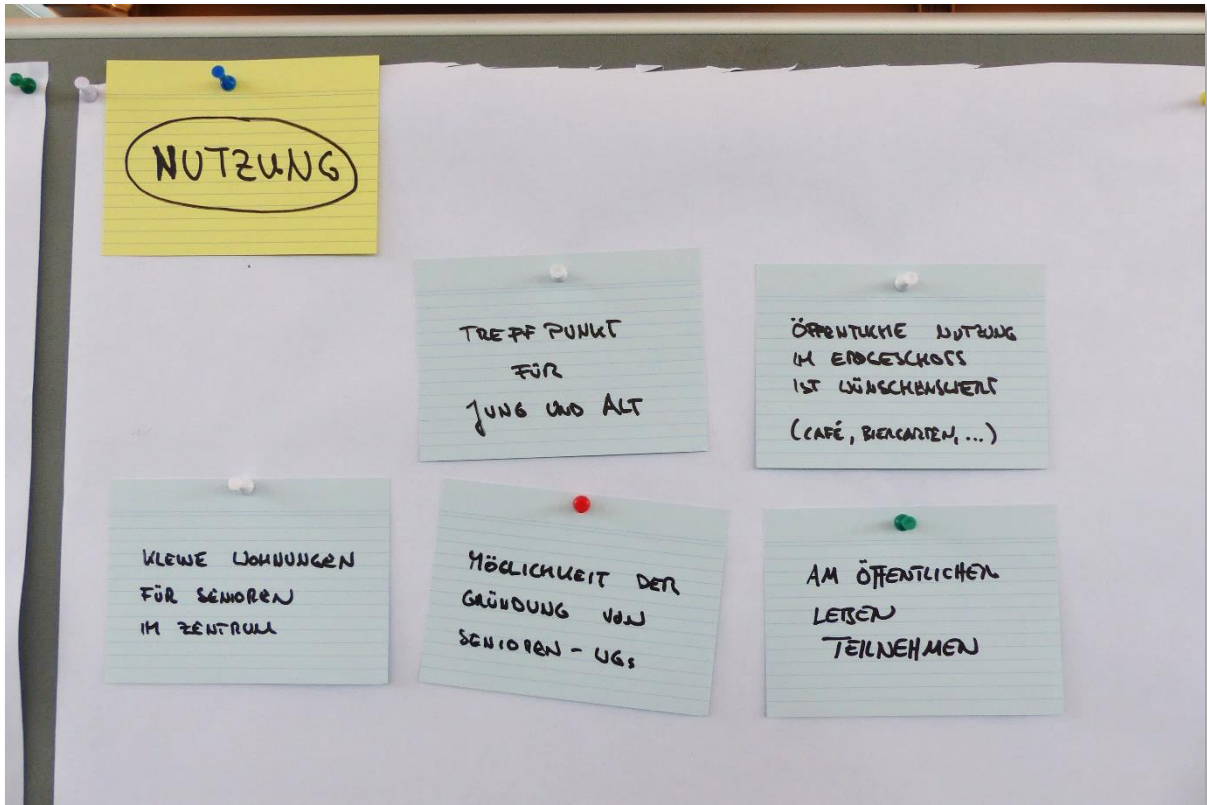 NUTZUNG
TREFFPUNKT
FÜR
JUNG UND ALT
ÖFFENTLICHE NUTZUNG
IM ERDGESCHOSS
IST WÜNSCHENSWERT
(CAFÉ, BIERGARTEN, ...)
KLEINE WOHNUNGEN
FÜR SENIOREN
IM ZENTRUM
MÖGLICHKEIT DER
GRÜNDUNG VON
SENIOREN - WGs
AM ÖFFENTLICHEN
LEBEN
TEILNEHMEN